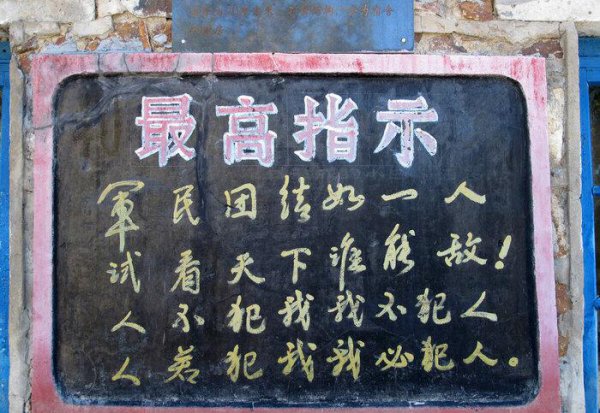 最高指示
軍民团结如一人
试看天下谁能敌!
人不犯我我不犯人
人若犯我我必犯人。